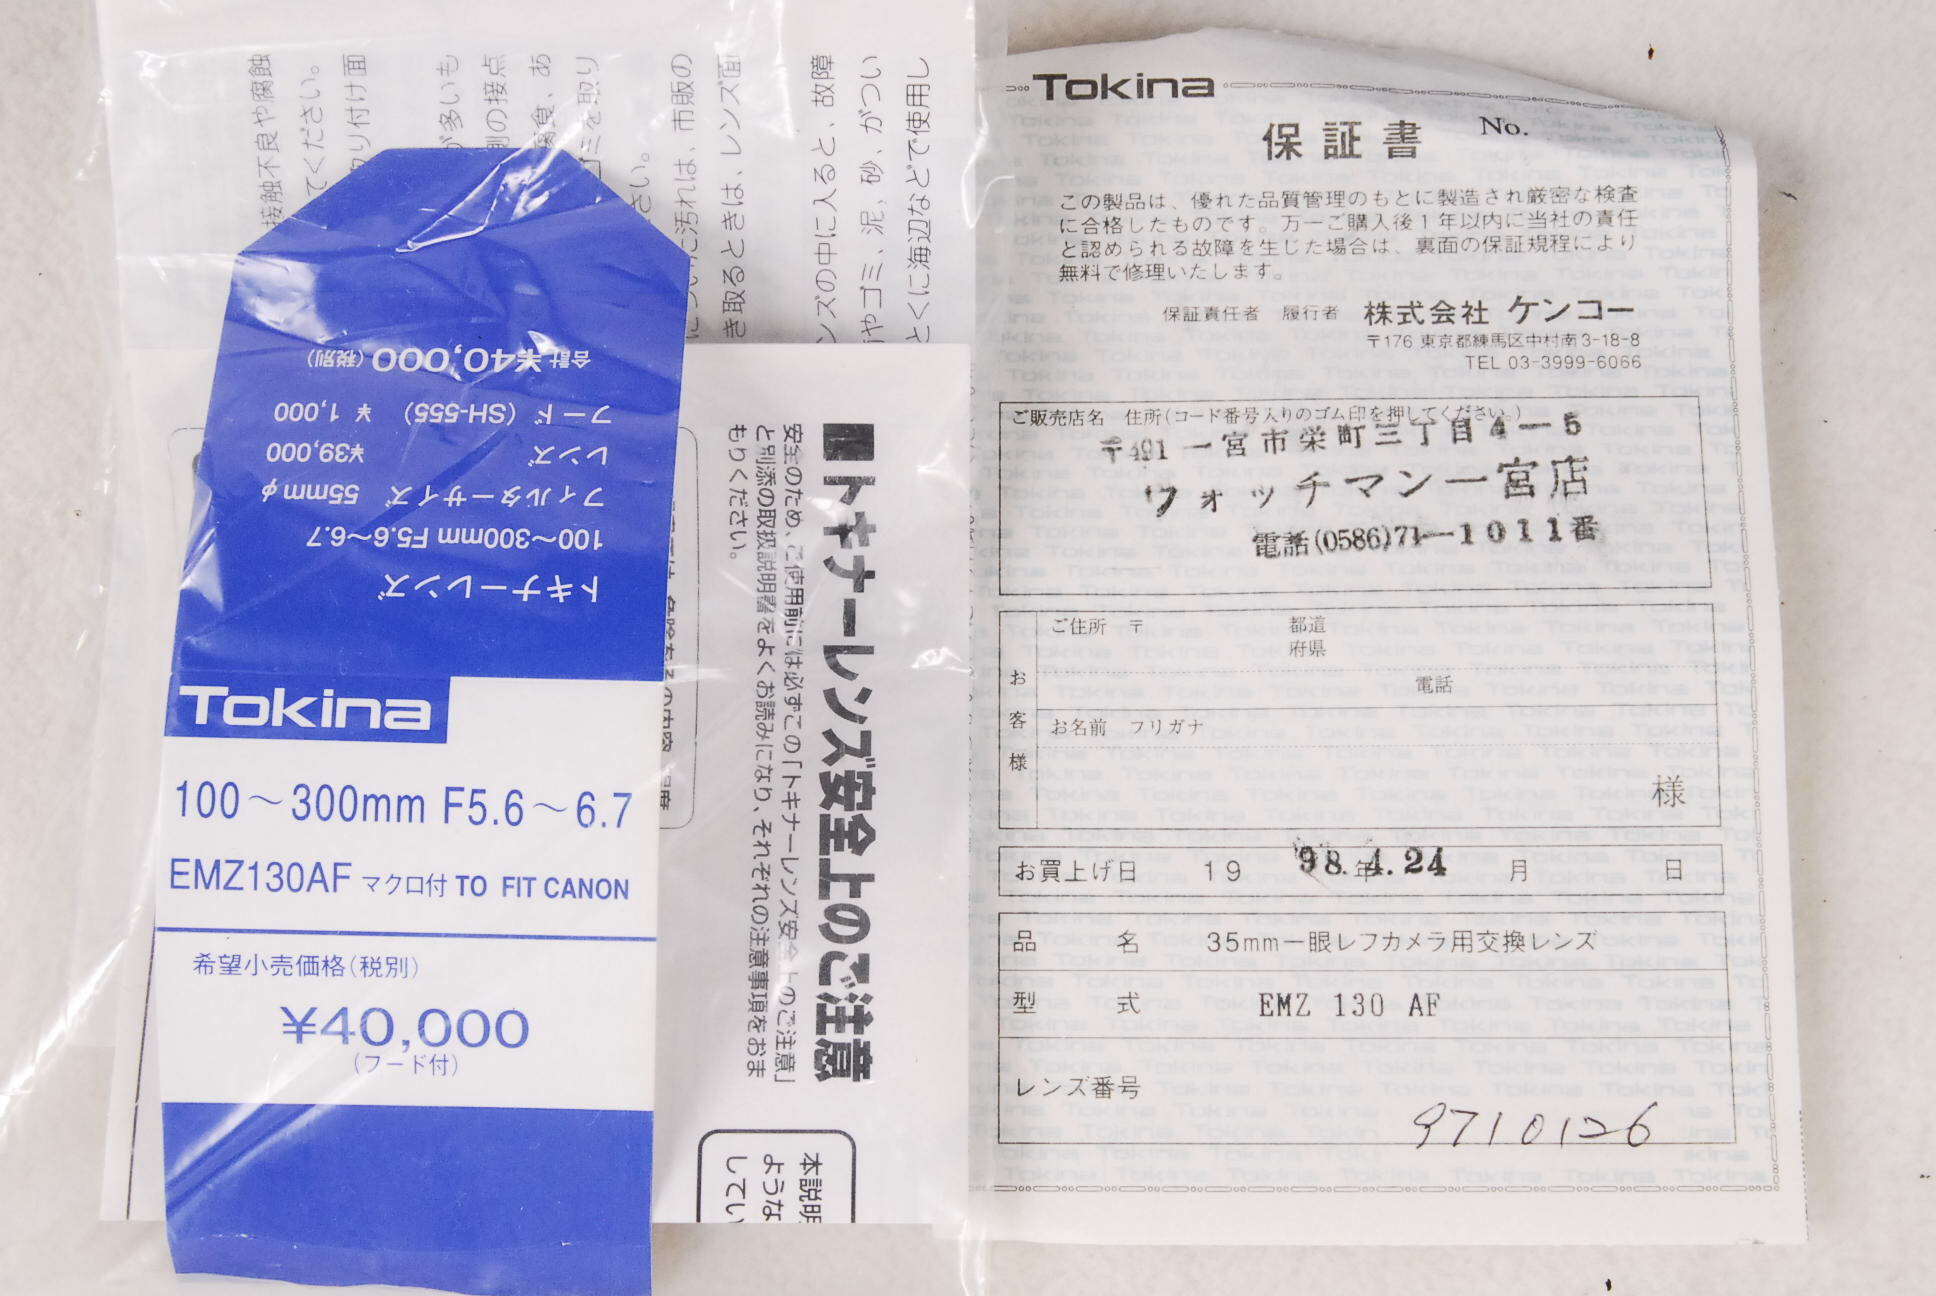 接触不良や腐蝕
てください。
取り付け面
が多いも
側の接点
腐食、あ
ゴミを取り
さい。
についた汚れは、市販の
き取るときは、レンズ面
ンズの中に入ると、故障
やゴミ、泥、砂、がつい
とくに海辺などで使用し
合計 ¥40,000 (税別)
フード (SH-555) ¥ 1,000
レンズ ¥39,000
フィルターサイズ 55mmφ
100〜300mm F5.6〜6.7
トキナーレンズ
Tokina
100〜300mm F5.6〜6.7
EMZ130AF マクロ付 TO FIT CANON
希望小売価格(税別)
¥40,000
(フード付)
■トキナーレンズ安全上のご注意
安全のため、ご使用前には必ずこの「トキナーレンズ安全上のご注意」
と別添の取扱説明書をよくお読みになり、それぞれの注意事項をおま
もりください。
本説明
ような
してい
Tokina
保証書 No.
この製品は、優れた品質管理のもとに製造され厳密な検査
に合格したものです。万一ご購入後1年以内に当社の責任
と認められる故障を生じた場合は、裏面の保証規程により
無料で修理いたします。
保証責任者 履行者 株式会社 ケンコー
〒176 東京都練馬区中村南3-18-8
TEL 03-3999-6066
ご販売店名 住所(コード番号入りのゴム印を押してください。)
〒491 一宮市栄町三丁目4-5
ウォッチマン一宮店
電話(0586)71-1011番
お客様
ご住所 〒 都道
府県
電話
お名前 フリガナ
様
お買上げ日 19 98.年4.24 月 日
品名 35mm一眼レフカメラ用交換レンズ
型式 EMZ 130 AF
レンズ番号
9710126